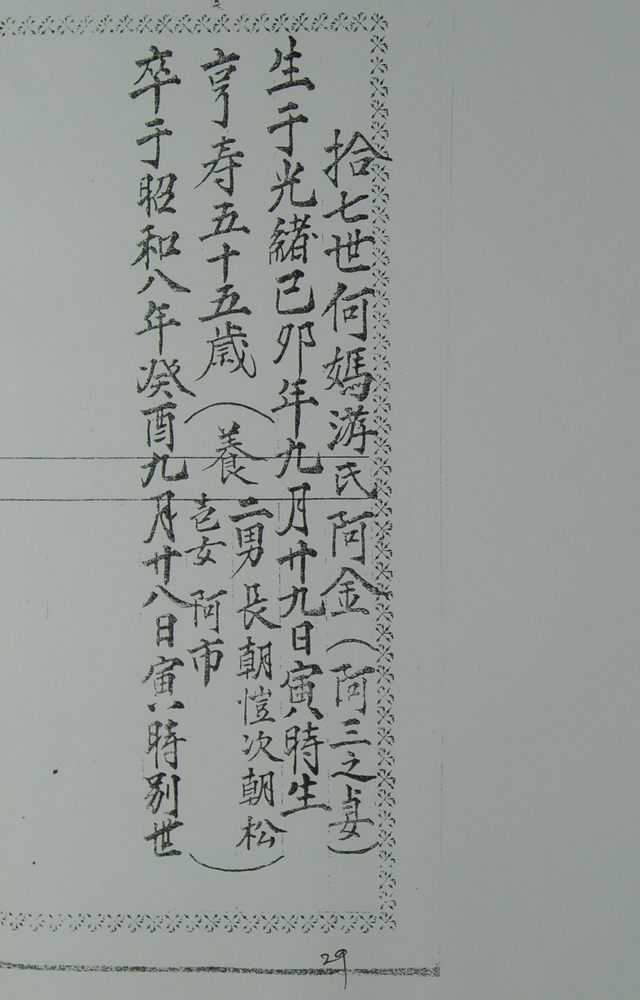 拾七世何媽游氏阿金(阿三之妻)
生于光緒己卯年九月廿九日寅時生
亨寿五十五歲(養二男長朝愷次朝松
壱女阿市)
卒于昭和八年癸酉九月廿八日寅時別世
29